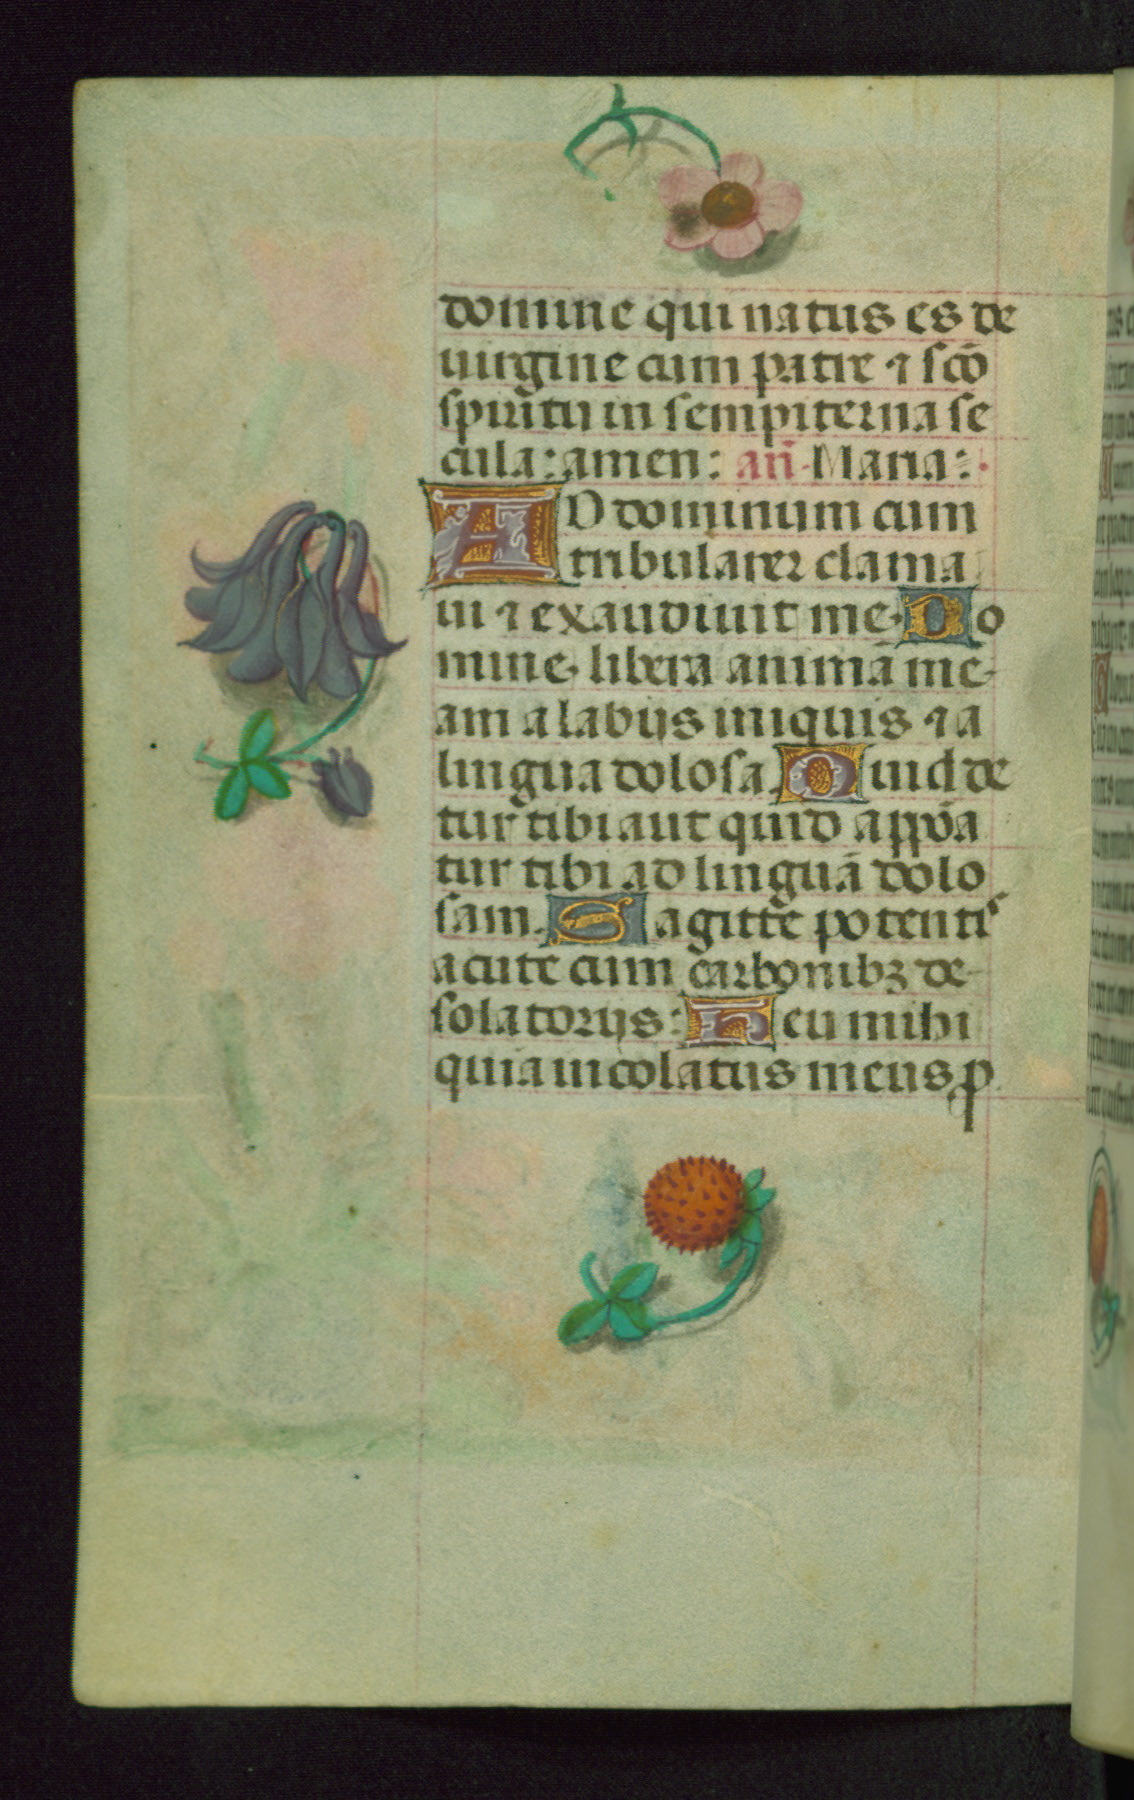 domine qui natus es de
uirgine cum patre ⁊ sc̄o
spiritu in sempiterna se
cula : amen : an̄ · Maria :·
AD dominum cum
tribularer clama
ui ⁊ exaudiuit me · Do
mine · libera animā me-
am a labijs iniquis ⁊ a
lingua dolosa · Quid de
tur tibi aut quid appōa
tur tibi ad linguā dolo
sam · Sagitte potentis
acute cum carbonibꝫ de-
solatorijs : Heu mihi
quia incolatus meus ꝓ